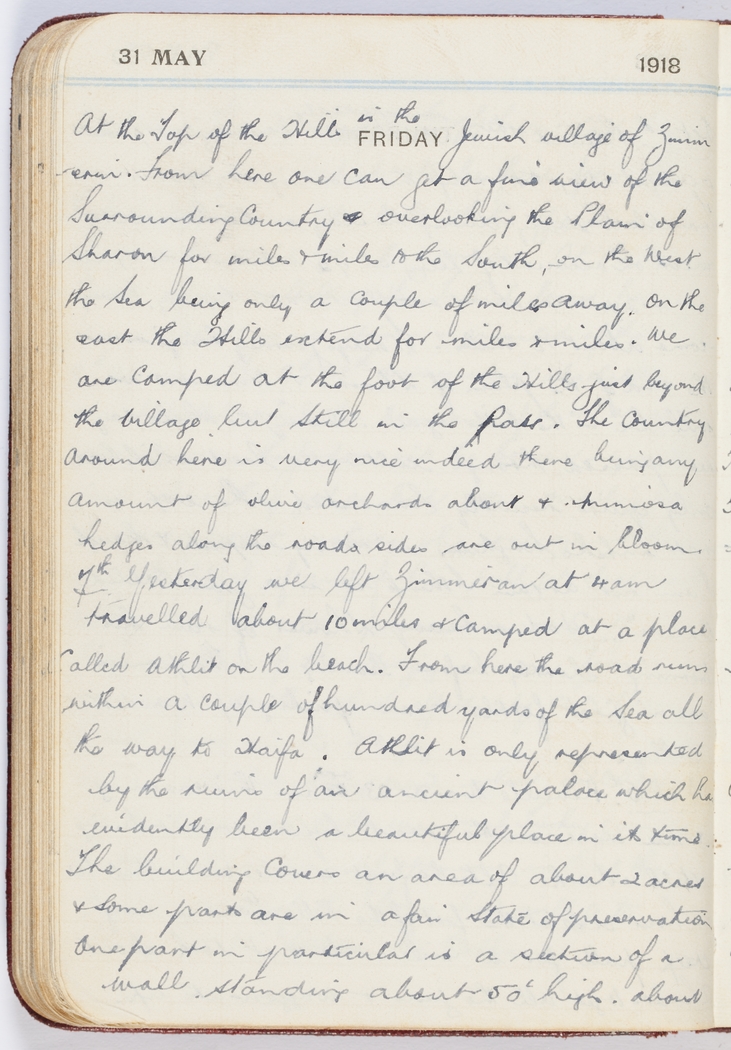 31 MAY 1918
At the Top of the Hills in the FRIDAY Jewish village of Zimm
erin. From here one can get a fine view of the
Surrounding Country & overlooking the Plain of
Sharon for miles & miles to the South, on the West
the Sea being only a couple of miles away. On the
east the Hills extend for miles & miles. We
are Camped at the foot of the Hills just beyond
the Village but still in the Pass. The Country
around here is very nice indeed there being any
amount of olive orchards about & mimosa
hedges along the roads sides are out in bloom.
7th Yesterday we left Zimmeran at 4am
travelled about 10 miles & Camped at a place
Called Athlit on the beach. From here the road runs
within a couple of hundred yards of the Sea all
the way to Haifa. Athlit is only represented
by the ruins of an ancient palace which ha
evidently been a beautiful place in its time.
The building Covers an area of about 2 acres
& some parts are in a fair State of preservation
One part in particular is a section of a
wall standing about 50' high. about